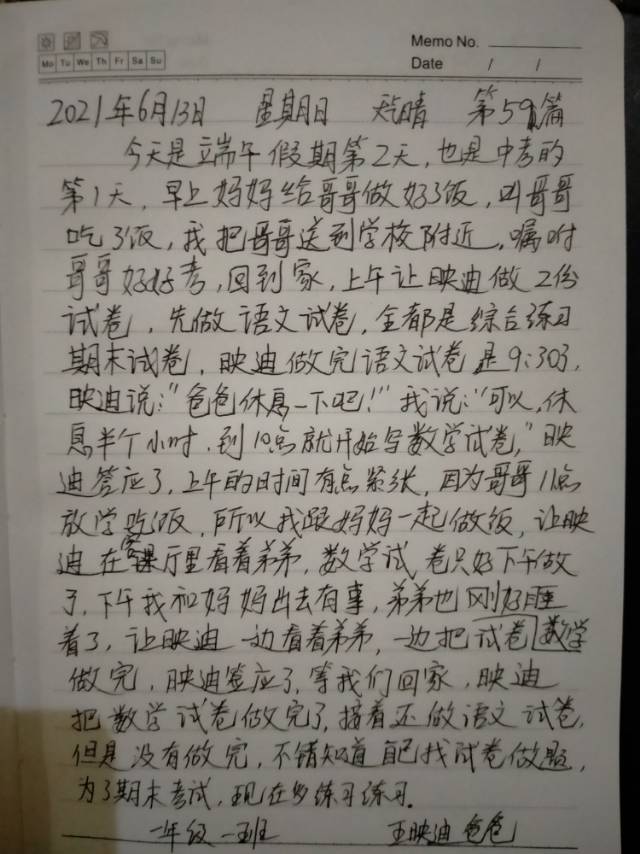 Memo No.
Mo Tu We Th Fr Sa Su
Date / /
2021年6月13日 星期日 天气晴 第59篇
今天是端午假期第2天，也是中考的
第1天，早上妈妈给哥哥做好了饭，叫哥哥
吃了饭，我把哥哥送到学校附近，嘱咐
哥哥好好考，回到家，上午让映迪做2份
试卷，先做语文试卷，全都是综合练习
期末试卷，映迪做完语文试卷是9:30了，
映迪说："爸爸休息一下吧！"我说："可以，休
息半个小时，到10点就开始写数学试卷，"映
迪答应了，上午的时间有点紧张，因为哥哥11点
放学吃饭，所以我跟妈妈一起做饭，让映
迪在客厅里看着弟弟，数学试卷只好下午做
了，下午我和妈妈出去有事，弟弟也刚好睡
着了，让映迪一边看着弟弟，一边把试卷数学
做完，映迪答应了，等我们回家，映迪
把数学试卷做完了，接着还做语文试卷，
但是没有做完，不错知道自己找试卷做题，
为了期末考试，现在多练习练习．
一年级一班 王映迪爸爸